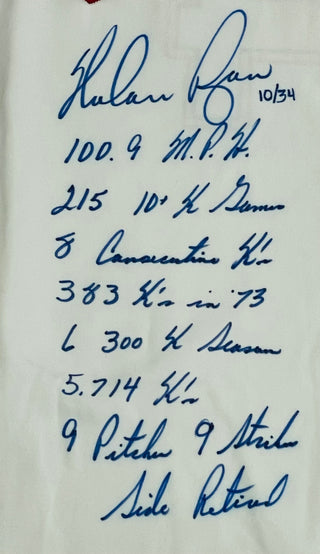 Nolan Ryan 10/34
100.9 M.P.H.
215 10+ K Games
8 Consecutive K's
383 K's in '73
6 300 K Season
5,714 K's
9 Pitches 9 Strikes
Side Retired